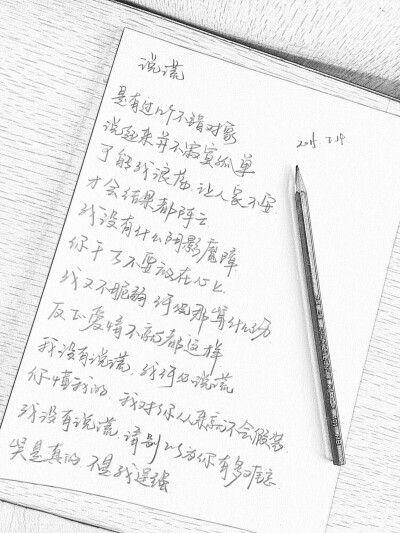 说谎
是有过几个不错对象
说起来并不寂寞孤单
了解我浪荡,让人家不安.
才会结果都阵亡
我没有什么阴影魔障
你千万不要放在心上.
我又不脆弱 何况那算什么伤
反正爱情不就都这样
我没有说谎,我何必说谎
你懂我的 我对你从来就不会假装.
我没有说谎,请别以为你有多难忘.
笑是真的 不是我逞强